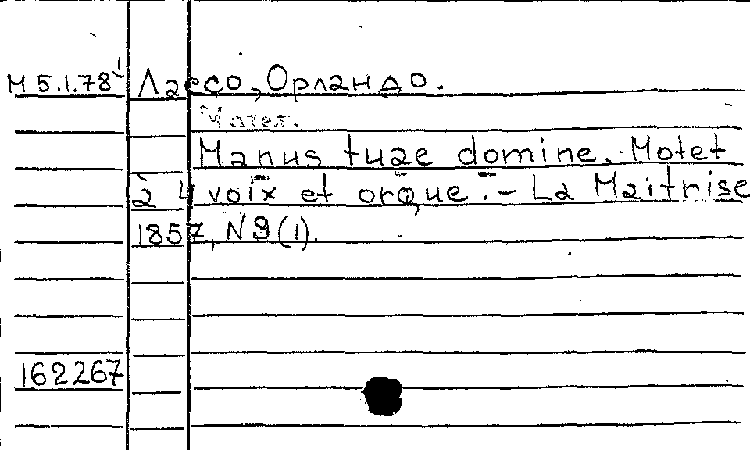 М 5.1.78¹ Лассо, Орландо.
Мотет.
Manus tuae domine. Motet
à 4 voix et orque. - La Maitrise
1857, N 9 (1).
162267